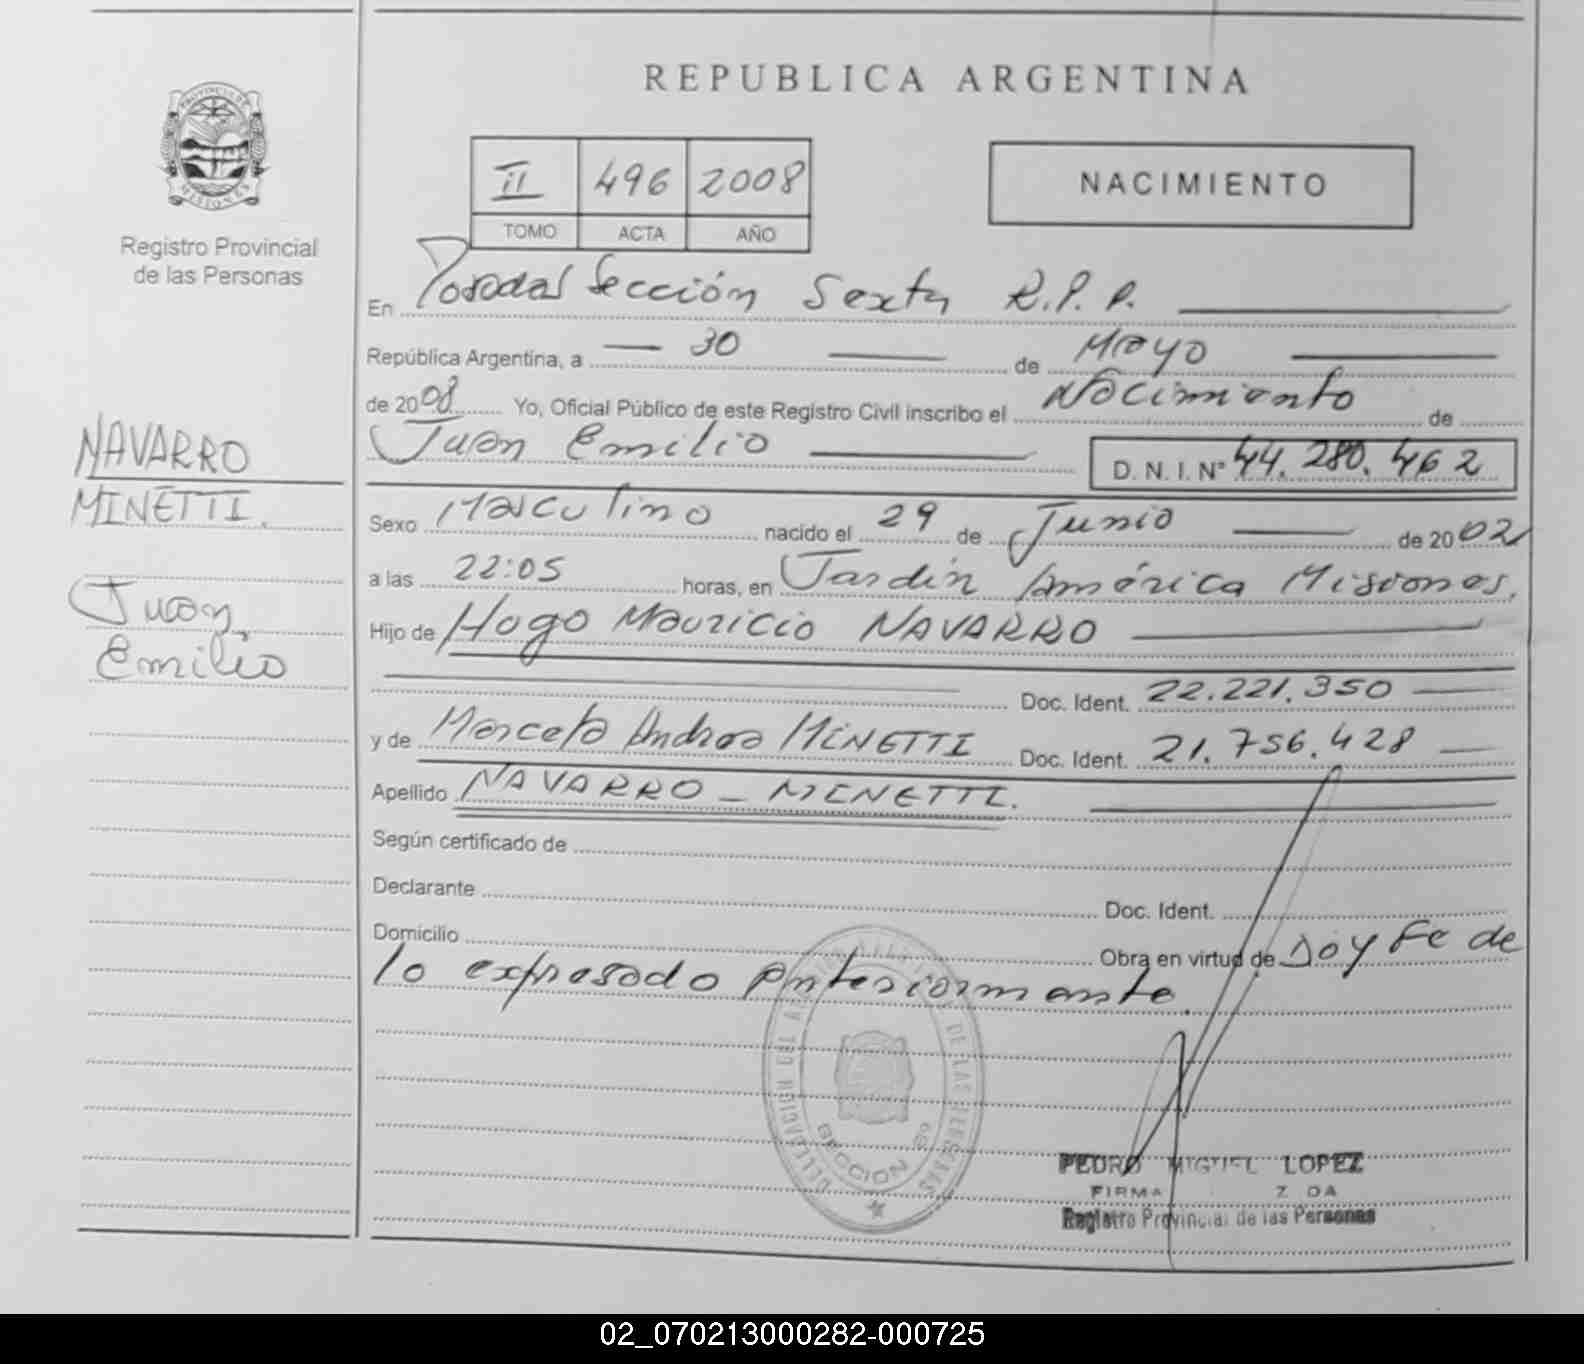 REPUBLICA ARGENTINA
PROVINCIA DE
MISIONES
Registro Provincial
de las Personas
II 496 2008
TOMO ACTA AÑO
NACIMIENTO
En Posadas Sección Sexta R.P.P.
República Argentina, a 30 de Mayo
de 2008 Yo, Oficial Público de este Registro Civil inscribo el Nacimiento de
Juan Emilio D. N. I. Nº 44.280.462
NAVARRO
MINETTI.
Juan
Emilio
Sexo Masculino nacido el 29 de Junio de 2002
a las 22:05 horas, en Jardín América Misiones,
Hijo de Hugo Mauricio NAVARRO
Doc. Ident. 22.221.350
y de Marcela Andrea MINETTI Doc. Ident. 21.756.428
Apellido NAVARRO - MINETTI.
Según certificado de
Declarante Doc. Ident.
Domicilio Obra en virtud de Doy Fe de
lo expresado anteriormente.
DE LAS PERSONAS
SECCION 6º
PEDRO MIGUEL LOPEZ
Registro Provincial de las Personas
02_070213000282-000725